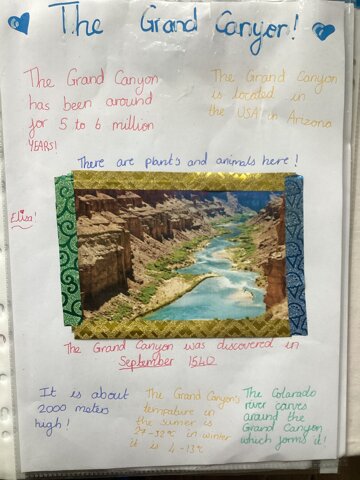 The Grand Canyon!
The Grand Canyon
has been around
for 5 to 6 million
YEARS!
The Grand Canyon
is located in
the USA in Arizona
There are plants and animals here!
Eliza!
The Grand Canyon was discovered in
September 1540
It is about
2000 meters
high!
The Grand Canyon's
tempature in
the sumer is
27-32°c in winter
it is 4-13°c
The Colarado
river carves
around the
Grand Canyon
which forms it!